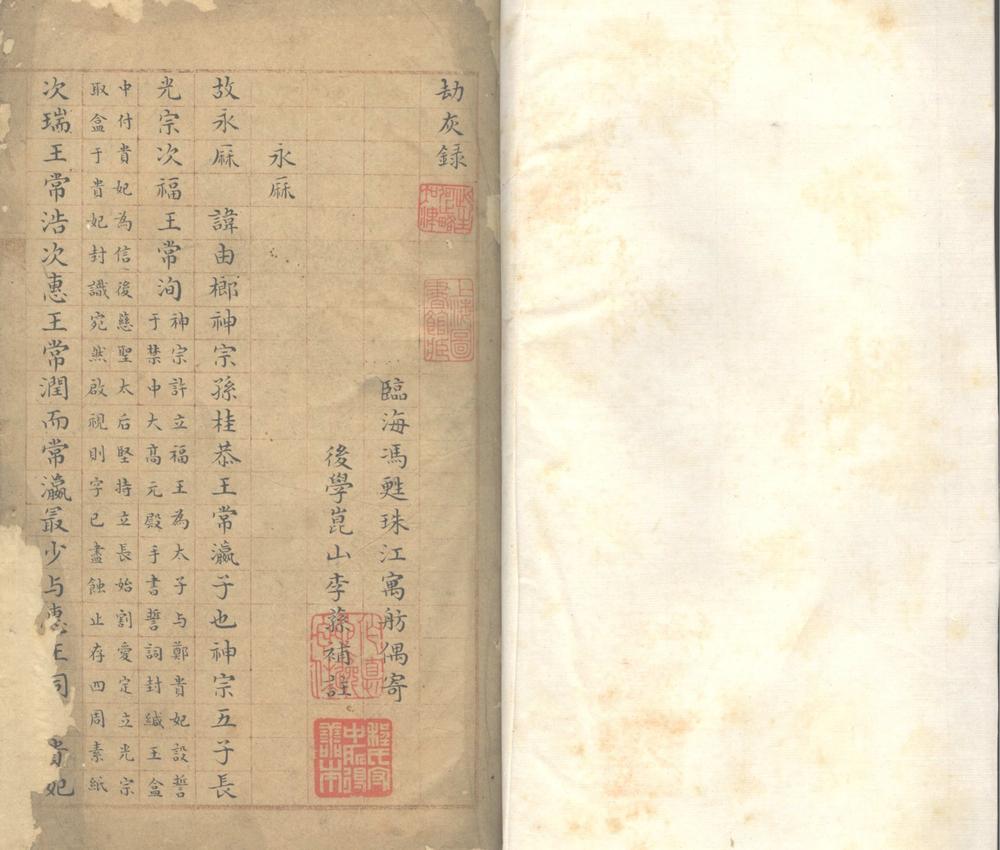 劫灰録
臨海馮甦珠江寓舫偶寄
後學崑山李蓀補註
永厤
故永厤 諱由榔神宗孫桂恭王常瀛子也神宗五子長
光宗次福王常洵
神宗許立福王為太子与鄭貴妃設誓
于禁中大高元殿手書誓詞封緘玉盒
中付貴妃為信後慈聖太后堅持立長始割愛定立光宗
取盒于貴妃封識宛然啟視則字已盡蝕止存四周素紙
次瑞王常浩次惠王常潤而常瀛最少与惠王同 貴妃
上海圖書館藏